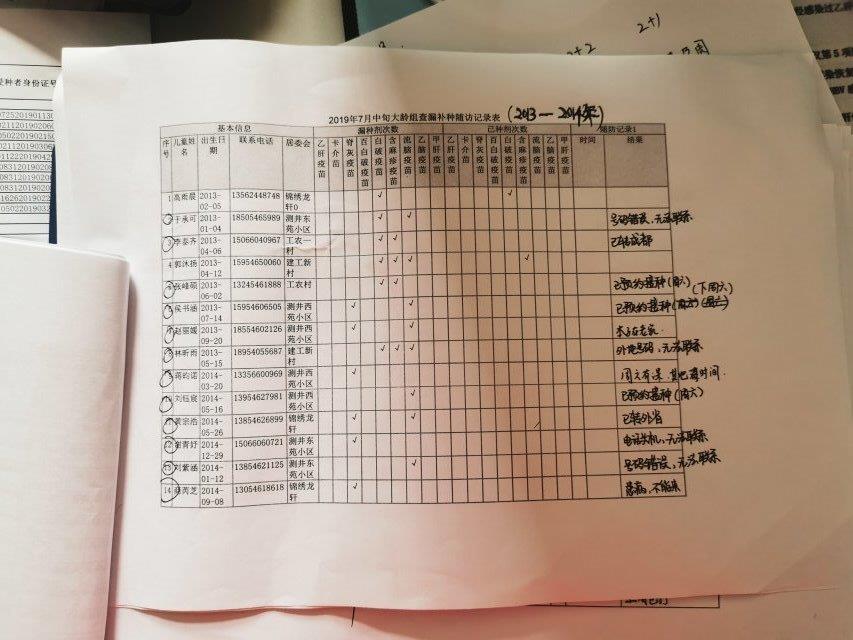 2+1
种者身份证号
2019年7月中旬大龄组查漏补种随访记录表 (2013—2014年)
基本信息 漏种剂次数 已种剂次数 随防记录1
序号 儿童姓名 出生日期 联系电话 居委会 乙肝疫苗 卡介苗 脊灰疫苗 百白破疫苗 白破疫苗 含麻疹疫苗 流脑疫苗 乙脑疫苗 甲肝疫苗 乙肝疫苗 卡介苗 脊灰疫苗 百白破疫苗 白破疫苗 含麻疹疫苗 流脑疫苗 乙脑疫苗 甲肝疫苗 时间 结果
1 高雨晨 2013-02-05 13562448748 锦绣龙轩0 √ √
于永可 2013-01-04 18505465989 测井东苑小区 √ √ 号码错误,无法联系
3 李泰齐 2013-04-06 15066040967 工农一村 √ √ 已转成都
4 郭沐扬 2013-04-12 15954650060 建工新村 √ √ √ √
张峰硕 2013-06-02 13245461888 工农村 √ √ 已预约接种(周六) (下周六)
侯书涵 2013-07-14 15954606505 测井西苑小区 √ √ 已预约接种
赵丽媛 2013-09-20 18554602126 测井西苑小区 √ √
林昕雨 2013-05-15 18954055687 建工新村 √ √ √ 外地号码,无法联系
蒋昀诺 2014-03-20 13356600969 测井西苑小区 √ 周六有课,其他没时间.
10 刘钰宸 2014-05-16 13954627981 测井西苑小区 √ 已预约接种(周六)
11 黄宗浩 2014-05-26 13854626899 锦绣龙轩 √ √ 已转外省
12 谢青妤 2014-12-29 15066060721 测井东苑小区 √ 电话关机,无法联系
13 刘紫涵 2014-01-12 13854621125 测井东苑小区 √ 号码错误,无法联系
14 芮芝 2014-09-08 13054618618 锦绣龙轩 √ 不能来